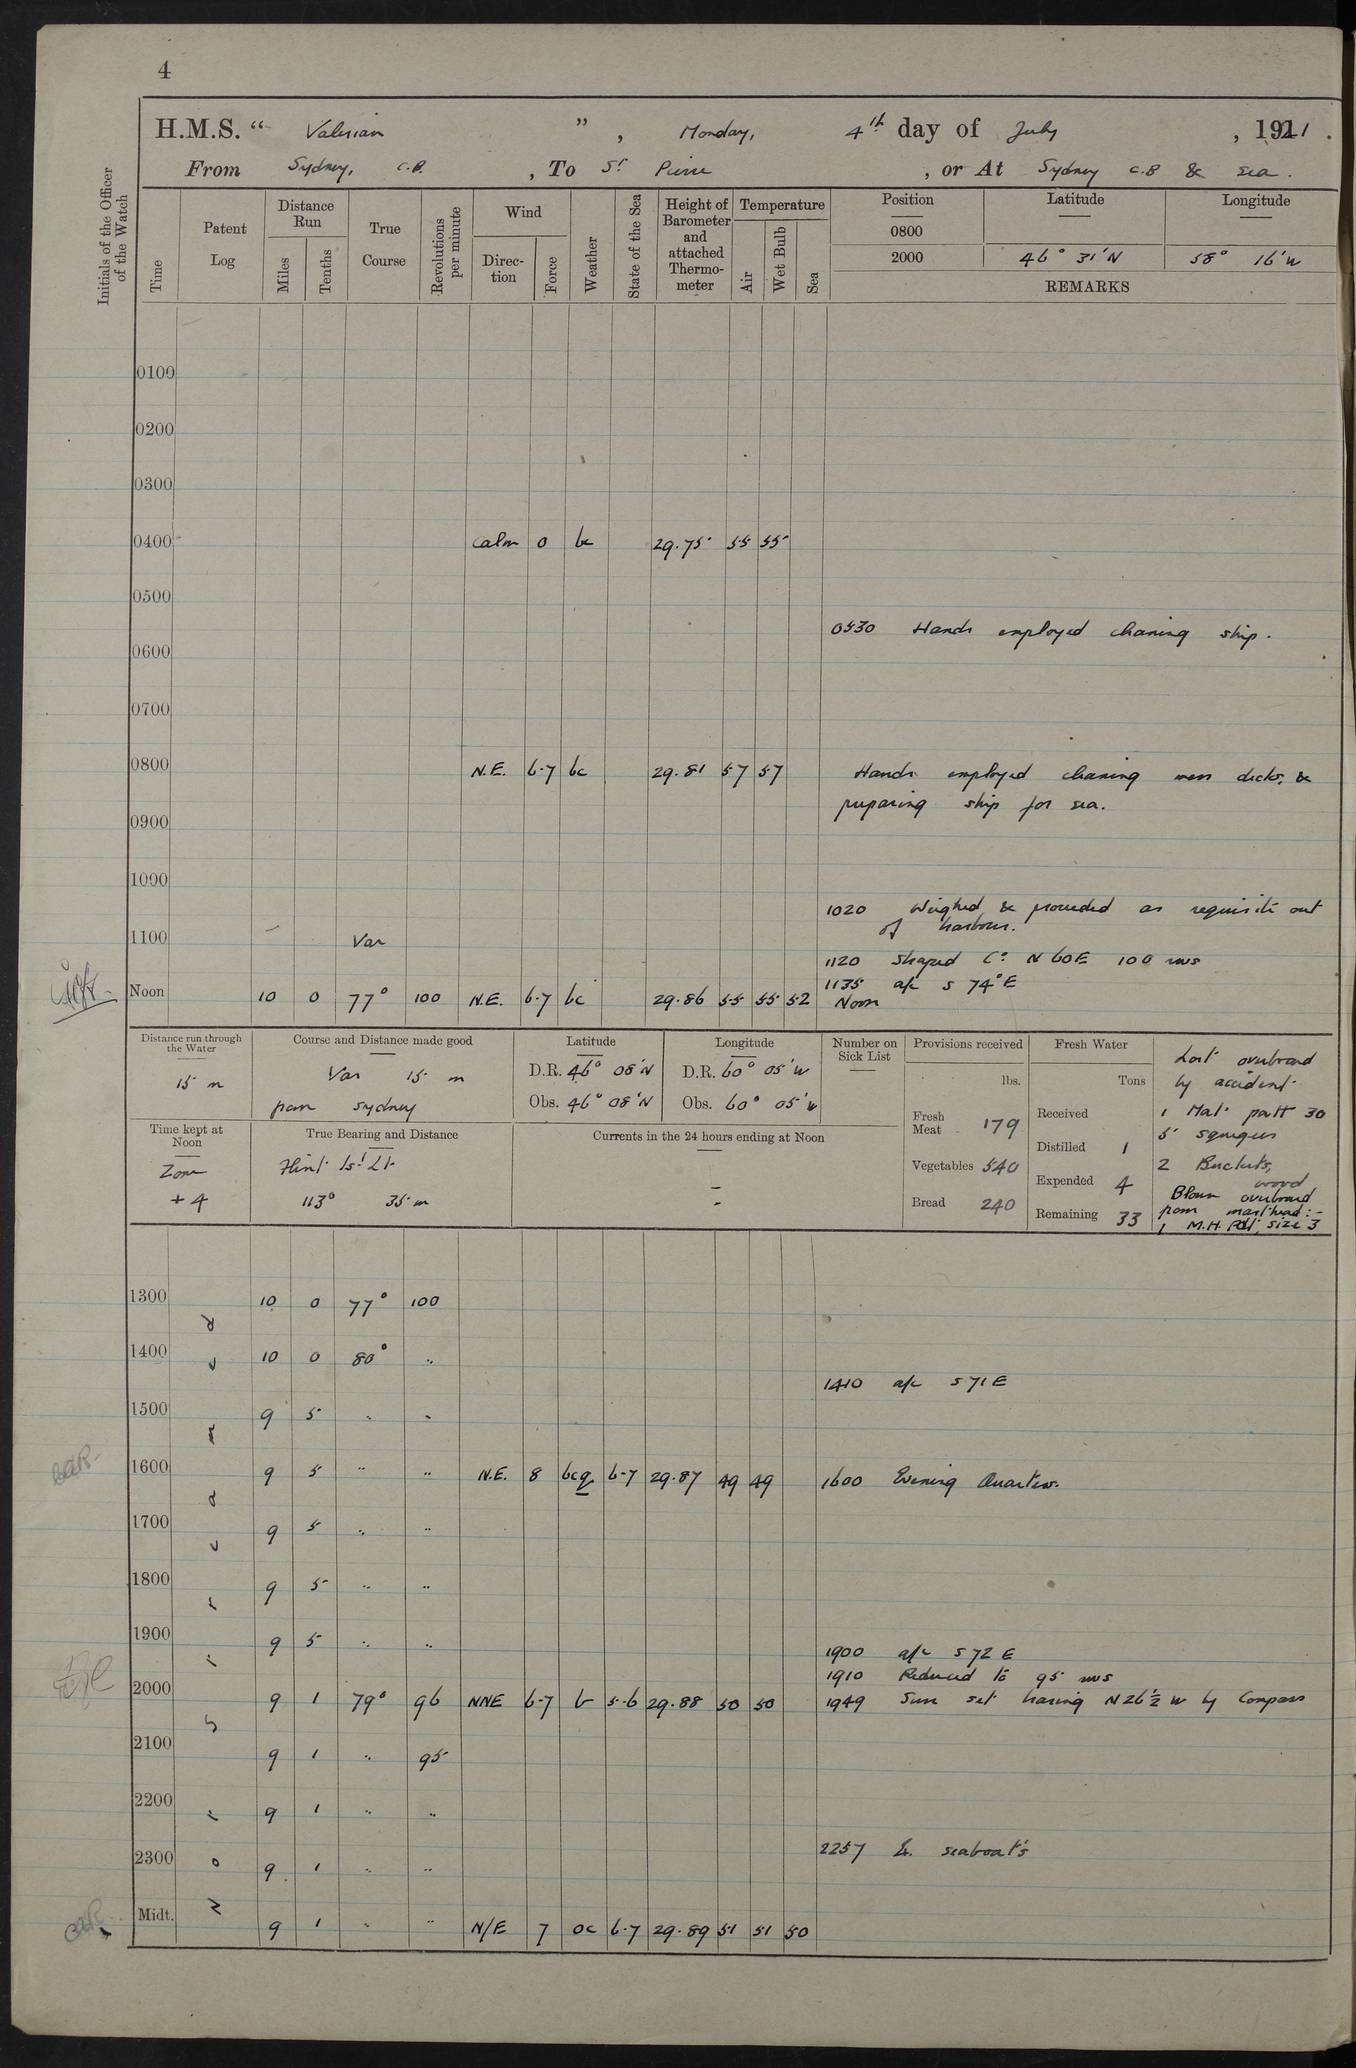 4
H.M.S. “ Valerian ” , Monday, 4th day of July , 1921 .
From Sydney, C.B. , To St Pierre , or At Sydney C.B & sea .
Initials of the Officer of the Watch
Time
Patent Log
Distance Run
Miles
Tenths
True Course
Revolutions per minute
Wind
Direction
Force
Weather
State of the Sea
Height of Barometer and attached Thermometer
Temperature
Air
Wet Bulb
Sea
Position Latitude Longitude
0800
2000 46° 31' N 58° 16' W
REMARKS
0100
0200
0300
0400 Calm 0 bc 29.75 55 55
0500
0530 Hands employed cleaning ship.
0600
0700
0800 N.E. 6-7 bc 29.81 57 57 Hands employed cleaning mess decks, &
preparing ship for sea.
0900
1000
1020 Weighed & proceeded as requisite out
of harbour.
1100 Var
1120 Shaped Co N 60 E 100 revs
1135 a/c S 74° E
Noon 10 0 77° 100 N.E. 6-7 bc 29.86 55 55 52 Noon
Distance run through the Water
15 m
Course and Distance made good
Var 15 m
from Sydney
Latitude
D.R. 46° 08' N
Obs. 46° 08' N
Longitude
D.R. 60° 05' W
Obs. 60° 05' W
Number on Sick List
Provisions received
lbs.
Fresh Meat 179
Vegetables 540
Bread 240
Fresh Water
Tons
Received
Distilled 1
Expended 4
Remaining 33
Lost overboard
by accident
1 Mat patt 30
5 squigees
2 Buckets,
wood
Blown overboard
from masthead:-
1 M.H. Pdt, size 3
Time kept at Noon
Zone
+ 4
True Bearing and Distance
Flint Isd Lt.
113° 35 m
Currents in the 24 hours ending at Noon
-
-
1300 10 0 77° 100
1400 10 0 80° "
1410 a/c S 71 E
1500 9 5 " "
1600 9 5 " " N.E. 8 bcq 6-7 29.87 49 49 1600 Evening Quarters.
1700 9 5 " "
1800 9 5 " "
1900 9 5 " "
1900 a/c S 72 E
1910 Reduced to 95 revs
2000 9 1 79° 96 NNE 6-7 b 5-6 29.88 50 50 1949 Sun set bearing N 26½ W by Compass
2100 9 1 " 95
2200 9 1 " "
2257 Ex. seaboats
2300 9 1 " "
Midt. 9 1 " " N/E 7 oc 6-7 29.89 51 51 50